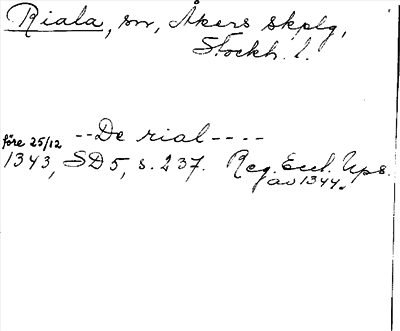 Riala, sn, Åkers skplg,
Stockh. l.
--De rial----
före 25/12
1343, SD5, s. 237. Reg. Eccl. Ups.
av 1344.